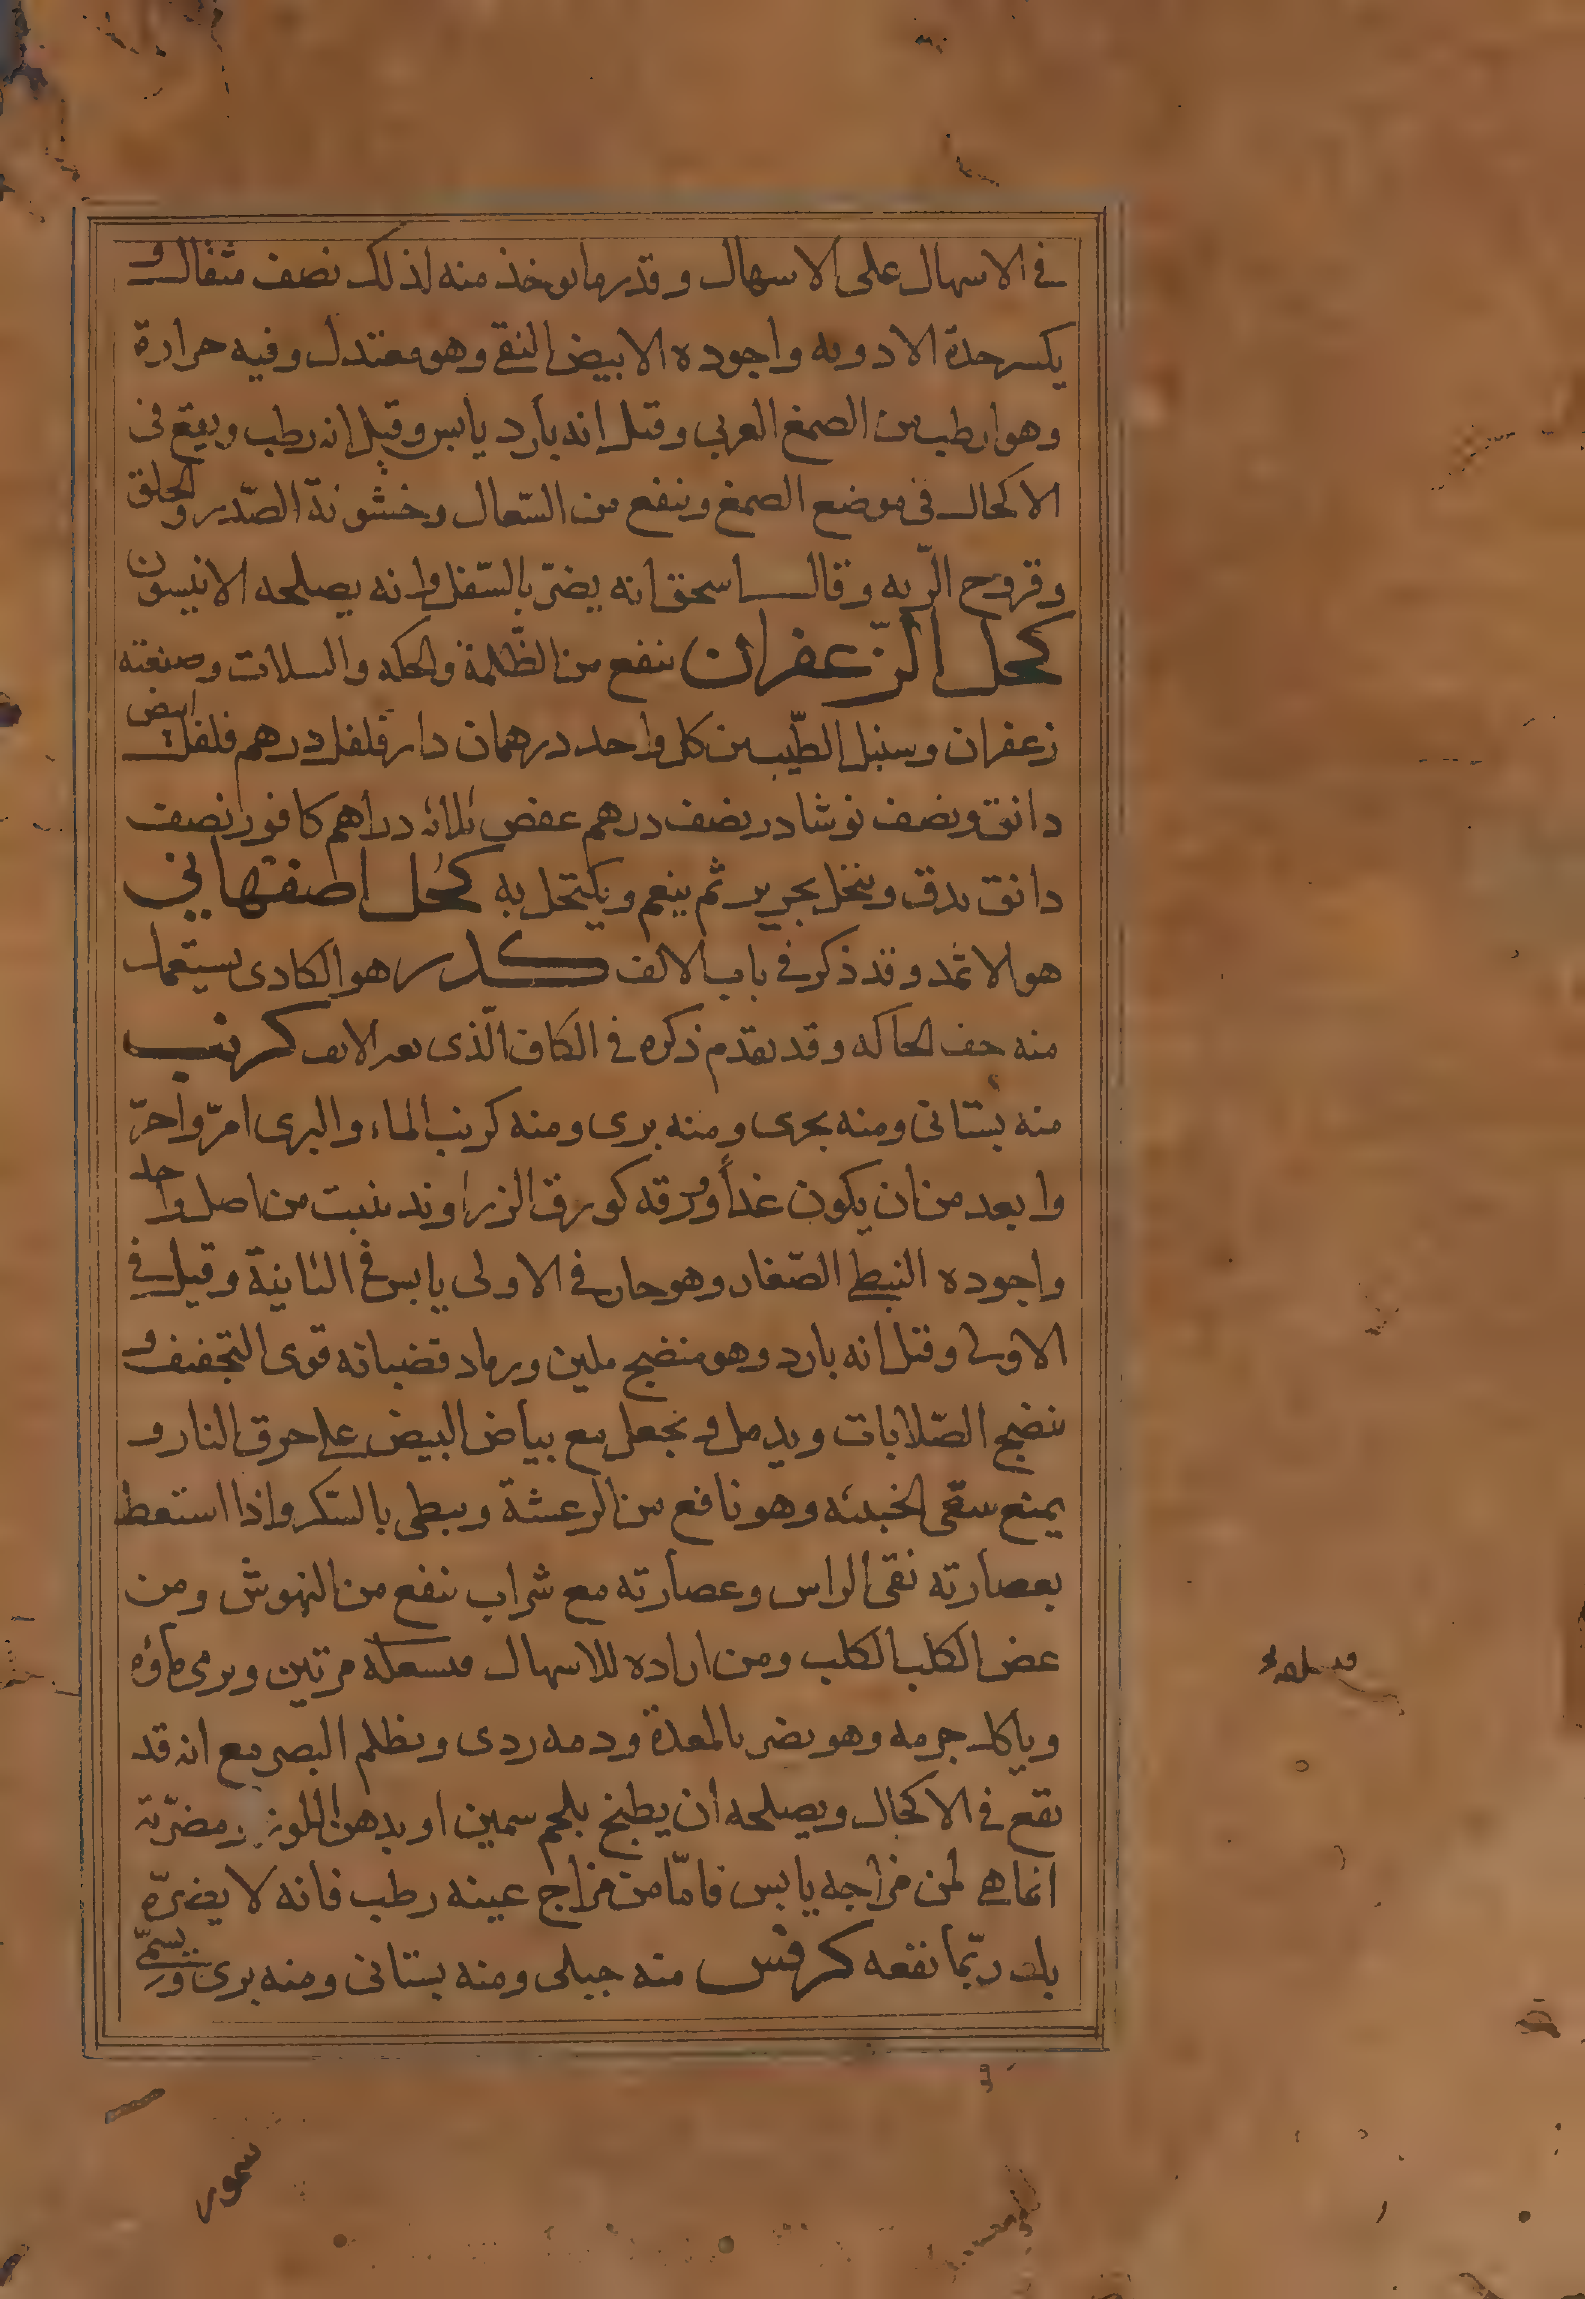 في الاسهال على الاسهال وقدر ما يوخذ منه لذلك نصف مثقال و
يكسر حدة الادويه واجوده الابيض النقي وهو معتدل وفيه حرارة
وهو ارطب من الصمغ العربي وقيل انه بارد يابس وقيل انه رطب ويقع في
الاكحال في موضع الصمغ وينفع من السّعال وخشونة الصّدر والحلق
وقروح الرّيه وقال اسحق انه يضرّ بالسّفل وانه يصلحه الانيسون
كحل الزّعفران ينفع من الظّلمة والحكه والسلاق وصنعته
زعفران وسنبل الطّيب من كل واحد درهمان دارفلفل درهم فلفل ابيض
دانق ونصف نوشادر نصف درهم عفص ثلاثه دراهم كافور نصف
دانق يدق وينخل بحرير ثم ينعم ويكتحل به كحل اصفهاني
هو الاثمد وقد ذكر في باب الالف كدر هو الكادى يستعمل
منه حف الحاكه وقد تقدم ذكره في الكاف الّذى بعد الالف كرنب
منه بستانى ومنه بحرى ومنه برى ومنه كرنب الماء والبرى امرّ واحرّ
وابعد من ان يكون غدأ وورقه كورق الزراوند ينبت من اصل واحد
واجوده النبطي الصّغار وهو حار في الاولى يابس في الثانية وقيل في
الاولى وقيل انه بارد وهو منضج ملين ورماد قضبانه قوى التجفيف و
ينضج الصّلابات ويدمل ويجعل مع بياض البيض على حرق النار و
يمنع سعى الخبيثه وهو نافع من الرعشة ويبطى بالسّكر واذا استعط
بعصارته نقى الراس وعصارته مع شراب ينفع من النهوش ومن
عض الكلب الكلب ومن اراده للاسهال فيسلقه مرتين ويرمى ماؤه
وياكل جرمه وهو يضر بالمعدة ودمه ردى ويظلم البصر مع انه قد
يقع في الاكحال ويصلحه ان يطبخ بلحم سمين او بدهن اللوز ومضرّته
انما هي لمن مزاجه يابس فامّا من مزاج عينه رطب فانه لا يضرّه
بل ربّما نفعه كرفس منه جبلى ومنه بستانى ومنه برى ويسمّى